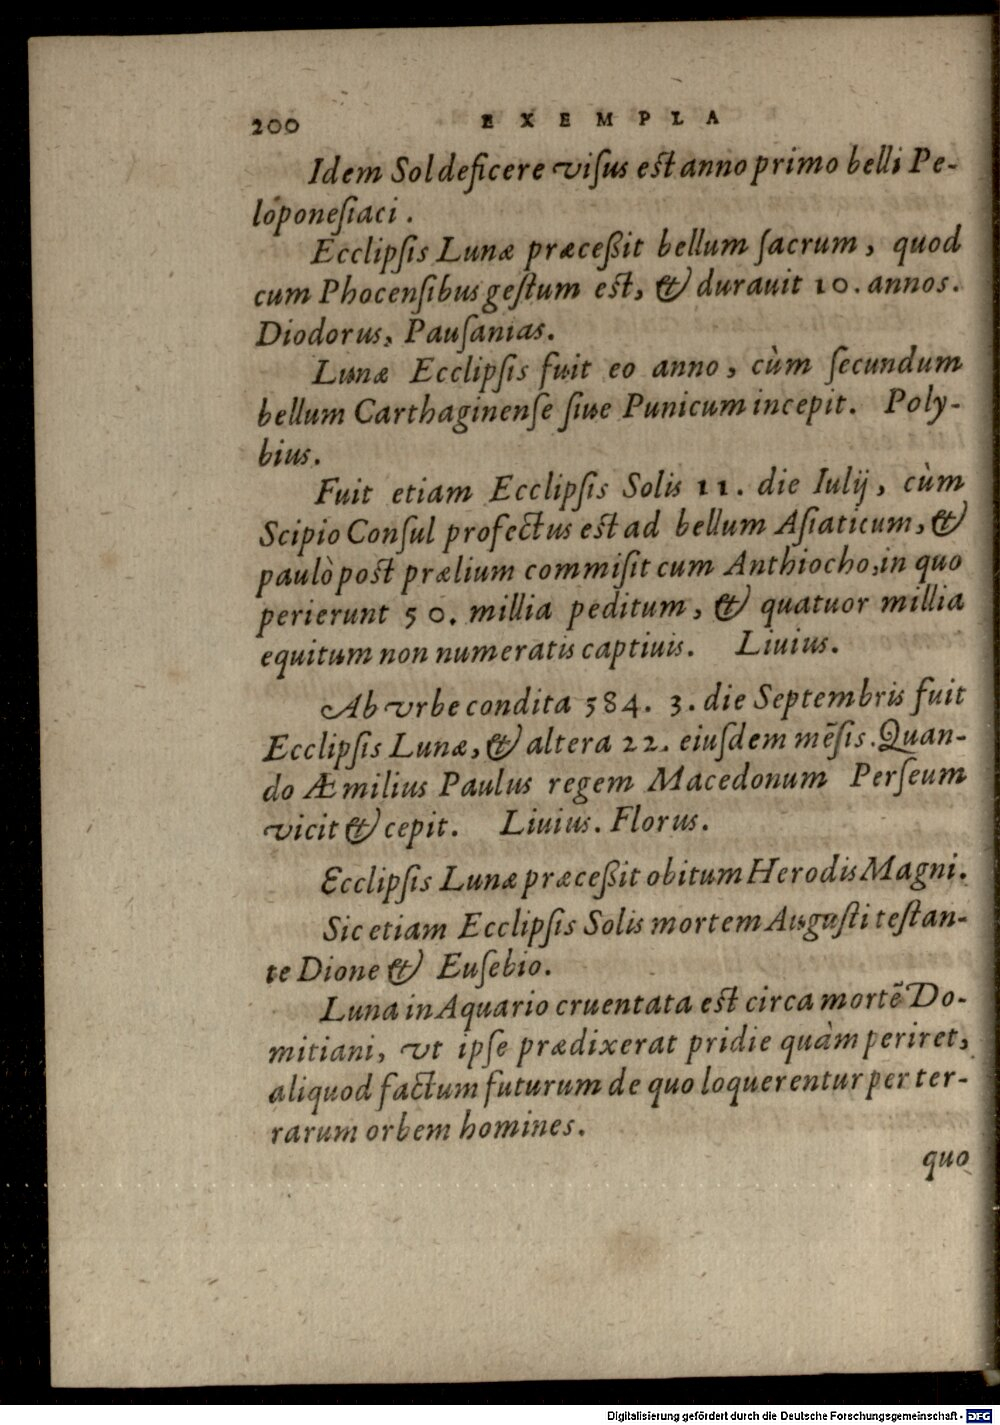 200 EXEMPLA
Idem Sol deficere viſus eſt anno primo belli Pe-
loponeſiaci .
Ecclipſis Lunæ præceßit bellum ſacrum, quod
cum Phocenſibus geſtum eſt, & durauit 10. annos.
Diodorus, Pauſanias.
Lunæ Ecclipſis fuit eo anno, cùm ſecundum
bellum Carthaginenſe ſiue Punicum incepit. Poly-
bius.
Fuit etiam Ecclipſis Solis 11. die Iulij, cùm
Scipio Conſul profectus eſt ad bellum Aſiaticum, &
paulò poſt prælium commiſit cum Anthiocho, in quo
perierunt 50. millia peditum, & quatuor millia
equitum non numeratis captiuis. Liuius.
Ab vrbe condita 584. 3. die Septembris fuit
Ecclipſis Lunæ, & altera 22. eiuſdem mẽſis. Quan-
do Æmilius Paulus regem Macedonum Perſeum
vicit & cepit. Liuius. Florus.
Ecclipſis Lunæ præceßit obitum Herodis Magni.
Sic etiam Ecclipſis Solis mortem Auguſti teſtan-
te Dione & Euſebio.
Luna in Aquario cruentata eſt circa mortẽ Do-
mitiani, vt ipſe prædixerat pridie quàm periret,
aliquod factum futurum de quo loquerentur per ter-
rarum orbem homines.
quo
Digitalisierung gefördert durch die Deutsche Forschungsgemeinschaft - DFG